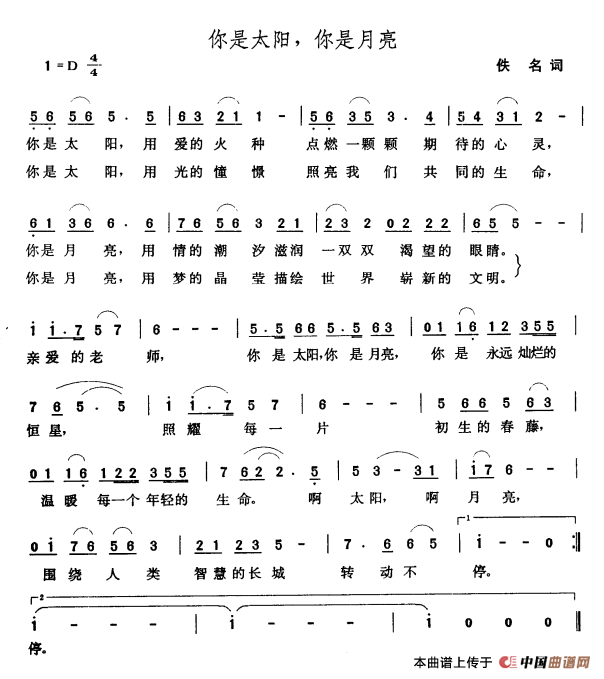 你是太阳，你是月亮
1=D 4/4 佚 名 词
5 6 5 6 5· 5 | 6 3 2 1 1 - | 5 6 3 5 3· 4 | 5 4 3 1 2 - |
你是 太 阳， 用 爱的 火 种 点燃 一颗颗 期 待的 心 灵，
你是 太 阳， 用 光的 憧 憬 照亮 我 们 共 同的 生 命，
6 1 3 6 6· 6 | 7 6 5 6 3 2 1 | 2 3 2 0 2 2 2 | 6 5 5 - - |
你是 月 亮， 用 情的 潮 汐滋润 一双双 渴 望的 眼睛。
你是 月 亮， 用 梦的 晶 莹描绘 世 界 崭 新的 文明。
i i· 7 5 7 | 6 - - - | 5· 5 6 6 5· 5 6 3 | 0 1 1 6 1 2 3 5 5 5 |
亲 爱 的 老 师， 你 是 太阳，你 是 月亮， 你 是 永远 灿烂的
7 6 5· 5 | i i i· 7 5 7 | 6 - - - | 5 6 6 5 6 3 |
恒 星， 照 耀 每 一 片 初 生 的 春 藤，
0 1 1 6 1 2 2 3 5 5 | 7 6 2 2· 5 | 5 3 - 3 1 | i 7 6 - - |
温 暖 每一个 年轻的 生 命。 啊 太 阳， 啊 月 亮，
0 i 7 6 5 6 3 | 2 1 2 3 5 - | 7· 6 6 5 | i - - 0 :‖
围 绕 人 类 智慧 的长 城 转 动 不 停。
i - - - | i - - - | i - - - ‖
停。
本曲谱上传于 中国曲谱网